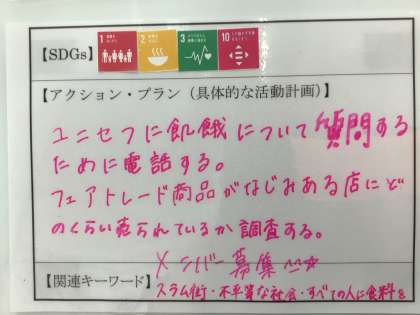 【SDGs】 1 2 3 10
【アクション・プラン（具体的な活動計画）】
ユニセフに飢餓について質問する
ために電話する。
フェアトレード商品がなじみある店にど
のくらい売られているか調査する。
メンバー募集
【関連キーワード】スラム街・不平等な社会・すべての人に食料を